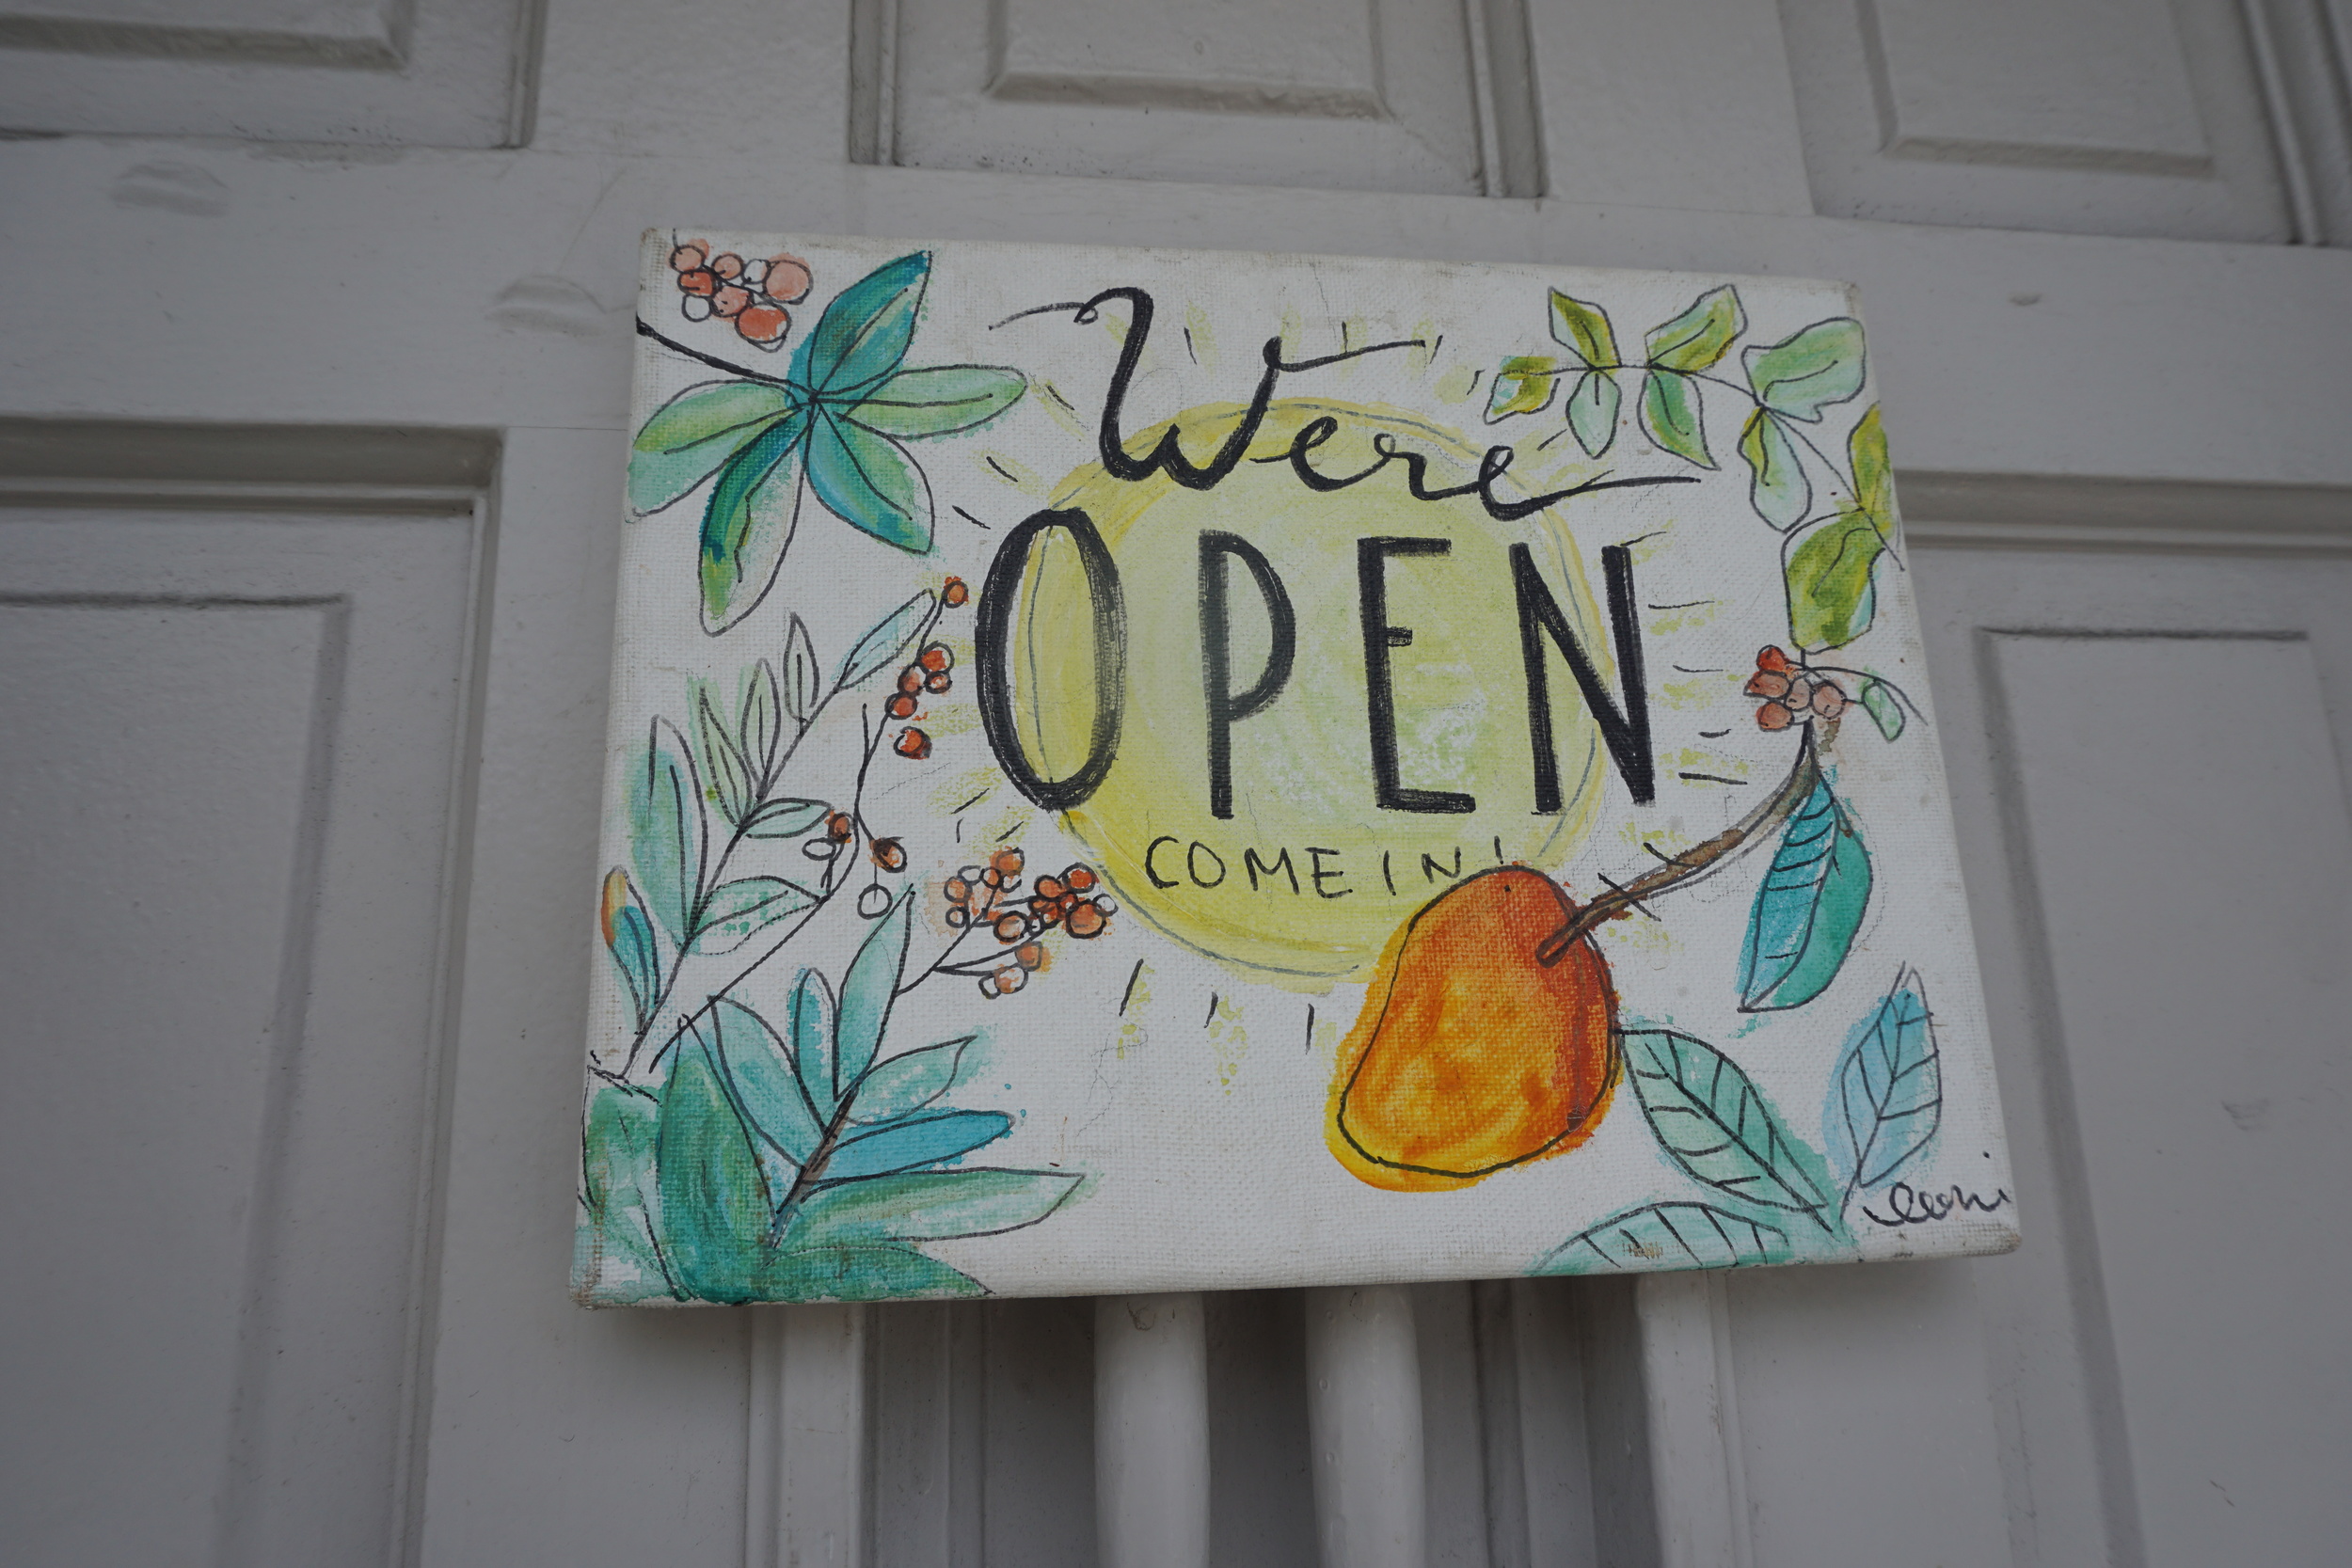 Were
OPEN
COME IN!